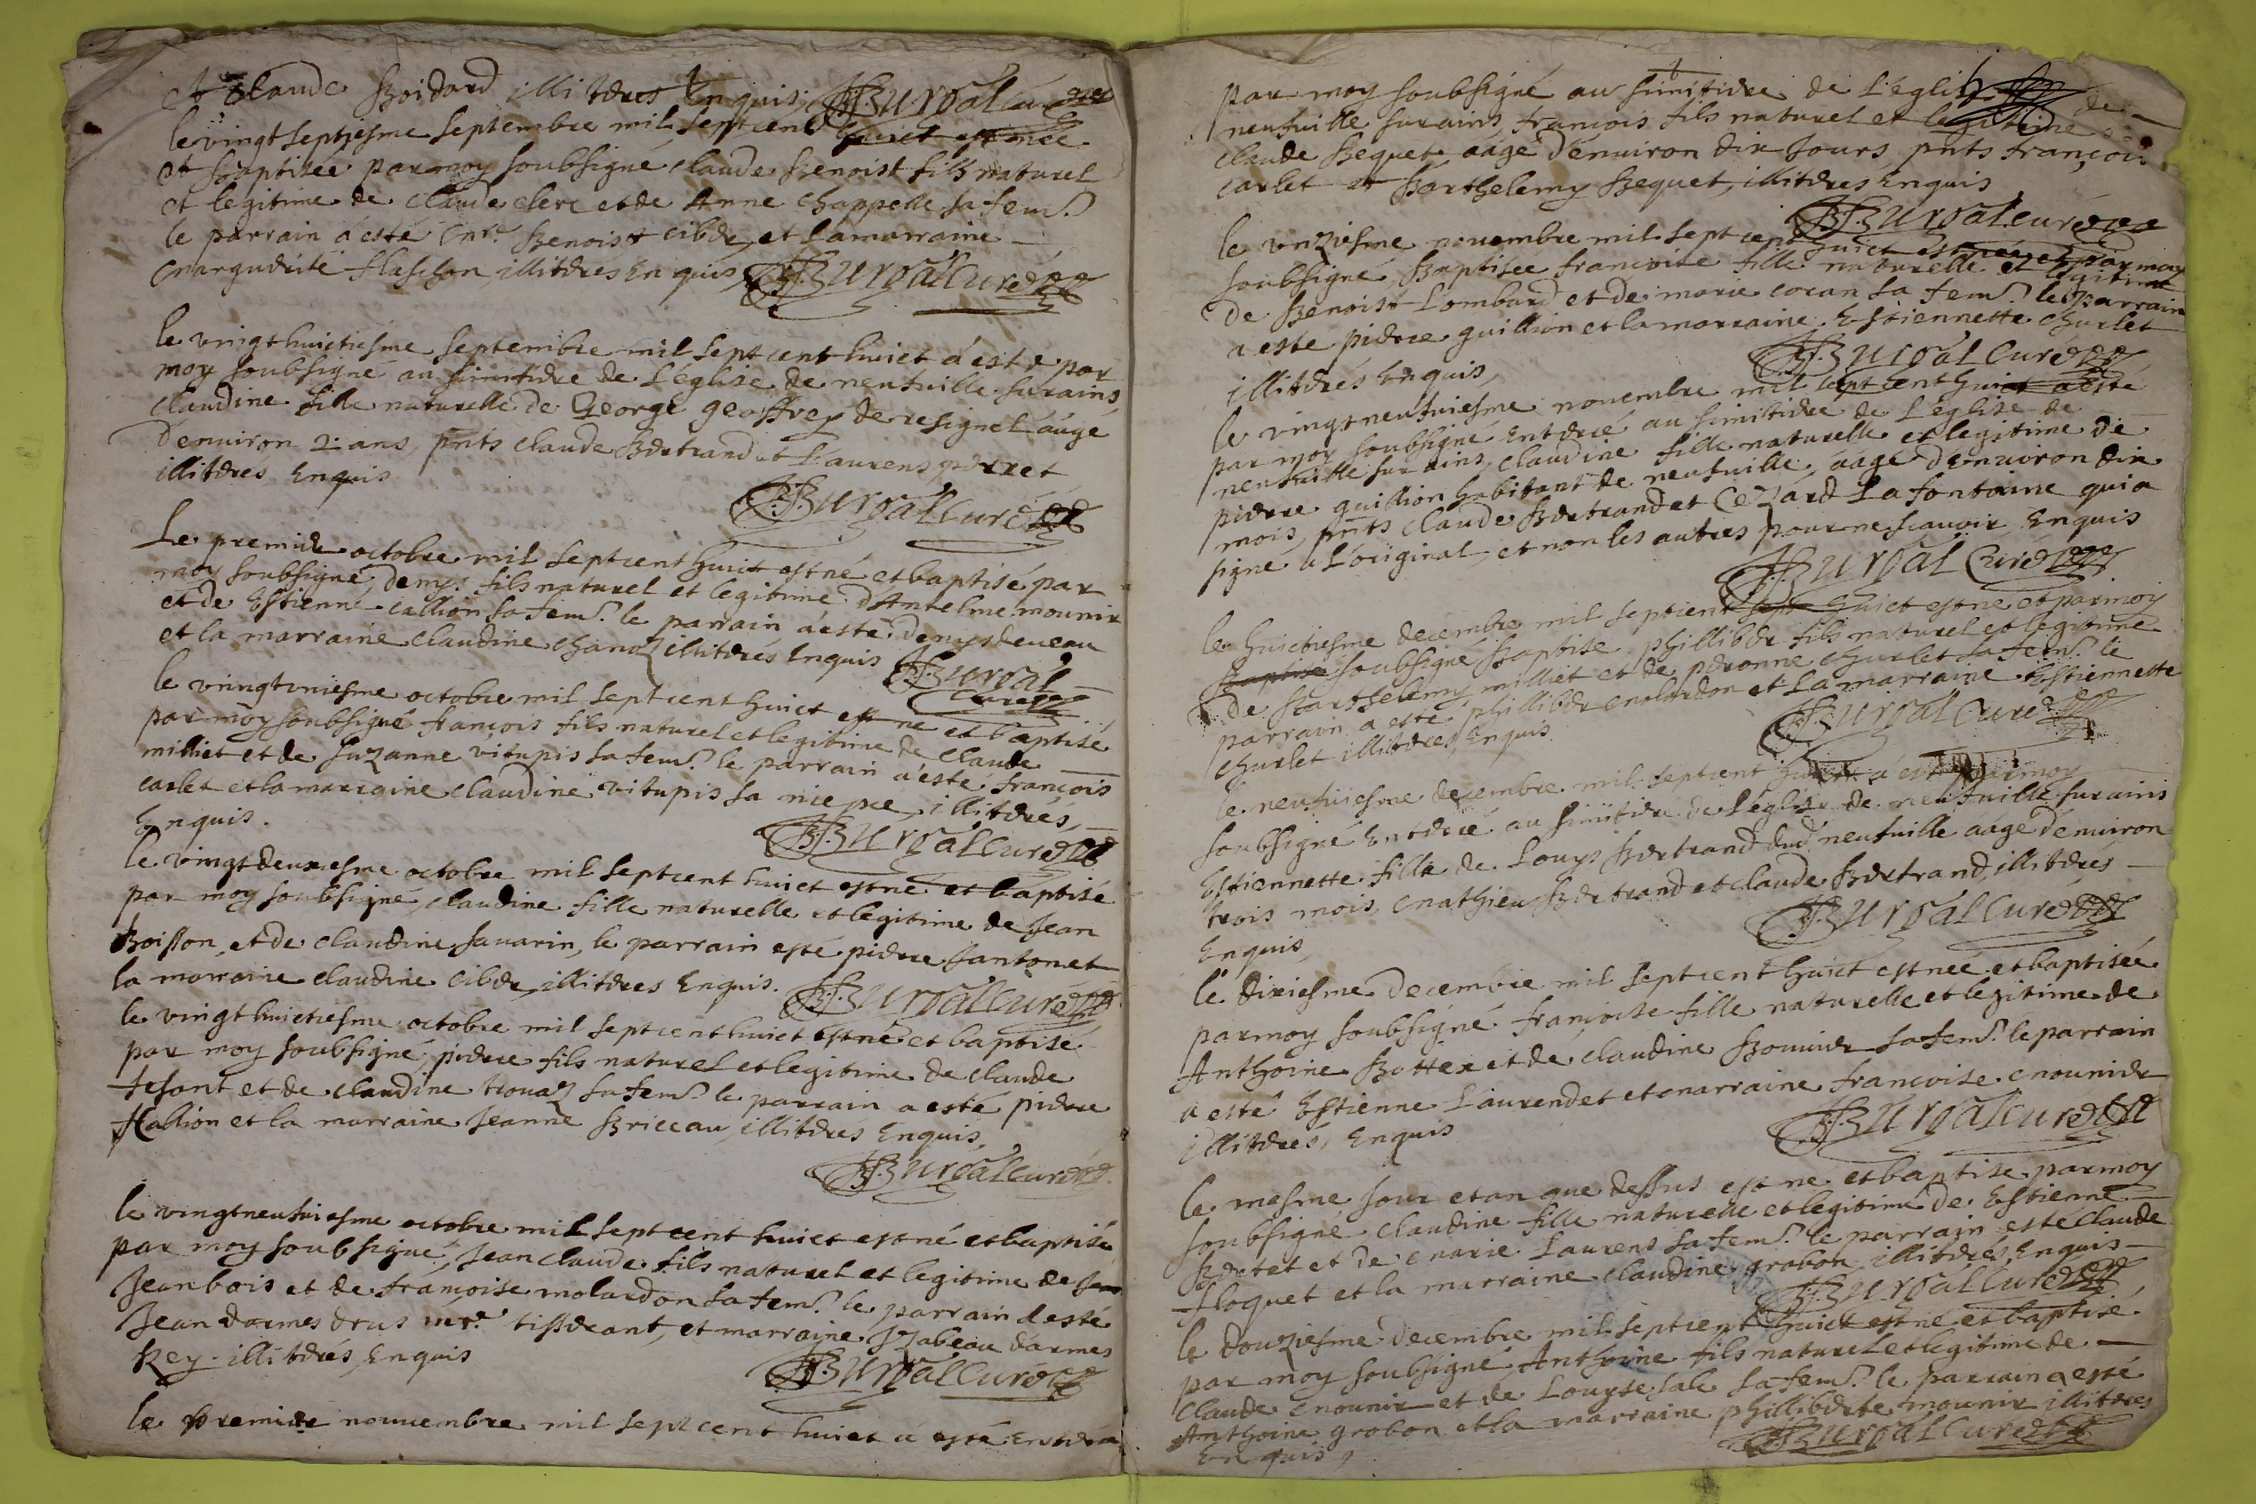 et Claude Boidard illiteres Enquis, Burgal Curé
le vingt septiesme septembre mil sept cent huict est née
et baptisée par moy soubsigné claude Benoist fils naturel
et legitime de claude clerc et de Anne chappelle sa fem.
le parrain á esté Benoist cibde et la marraine
marguerite flaschon illiteres Enquis, Burgal Curé
le vingt huictiesme septembre mil sept cent huict á esté par
moy soubsigné au simitiere de L'église de neufuille surains
claudine fille naturelle de George geoffrey de resignel áagé
d'enuiron 2 ans, pnts claude Bertrand et Laurens perret
illiteres Enquis
Burgal Curé
Le premier octobre mil sept cent huict est né et baptisé par
moy soubsigné, denys fils naturel et legitime d'Antelme mounir
et de Estienne callion sa fem. le parrain á esté denys deueau
et la marraine claudine chanoz illiteres Enquis Burgal
Curé
le vingt vniesme octobre mil sept cent huict est né et baptisé
par moy soubsigné françois fils naturel et legitime de claude
milliet et de suzanne vitupis sa fem. le parrain á esté françois
carlet et la marraine claudine vitupis sa niepce, illiterés,
Enquis.
Burgal Curé
le vingt deuxiesme octobre mil sept cent huict est né et baptisé
par moy soubsigné, claudine fille naturelle et legitime de Jean
Boisson, et de claudine sauarin, le parrain esté pierre santonet
la marraine claudine cibde, illiteres Enquis. Burgal Curé
le vingt huictiesme octobre mil sept cent huict est né et baptisé
par moy soubsigné, pierre fils naturel et legitime de claude
tesont et de claudine trouaz sa fem. le parrain a esté pierre
Hallion et la marraine Jeanne Briceau, illiteres Enquis,
Burgal Curé
le vingt neufuiesme octobre mil sept cent huict est né et baptisé
par moy soubsigné, Jean claude fils naturel et legitime de Jean
Jean bois et de françoise molardon sa fem. le parrain á esté
Jean darmes drus mr. tisserant, et marraine Jzabeau darmes
Rey illiterés, Enquis
Burgal Curé
le premier nouuembre mil sept cent huict a esté Enterré
par moy soubsigné au simitiere de L'eglise de
neufuille surains, françois fils naturel et legitime
claude Bequet áagé d'enuiron dix Jours, pnts françois
carlet et Barthelemy Bequet, illiteres Enquis
Burgal Curé
le vnziesme nouembre mil sept cent huict est née et par moy
soubsigné, Baptisée francoise fille naturelle et legitime
de Benoist Lombard et de marie coran sa fem. le parrain
a esté pierre guillion et la marraine Estiennette churlet
illiterés Enquis,
Burgal Curé
le vingt neufuiesme nouembre mil sept cent huict a esté
par moy soubsigné Enterré au simitiere de L'église de
neufuille sur ains, claudine fille naturelle et legitime de
pierre guillion habitant de neufuille, áagé d'enuiron dix
mois, pnts claude Bertrand et Cezard La fontanne qui a
signé á L'original, et non les autres pour ne scauoir, Enquis
Burgal Curé
le huictiesme decembre mil sept cent huict est né et par moy
soubsigné Baptisé phillibert fils naturel et legitime
de Barthelemy milliet et de peronne churlet sa fem. le
parrain a esté phillibert molardon et la marraine Estiennette
churlet illiteres Enquis
Burgal Curé
le neufuiesme decembre mil sept cent huict á esté par moy
soubsigné Enterré au simitiere de L'église de neufuille surains
Estiennette fille de Louys Bertrand dud neufuille áagé d'enuiron
trois mois, mathieu Bertrand et claude Bertrand, illiterés
Enquis,
Burgal Curé
le dixiesme decembre mil sept cent huict est née et baptisée
par moy soubsigné françoise fille naturelle et legitime de
Anthoine Bottex et de claudine Bouuier sa fem. le parrain
a esté Estienne Laurendet et marraine françoise mounier
illiterés, Enquis
Burgal Curé
le mesme Jour et an que dessus est né et baptisé par moy
soubsigné claudine fille naturelle et legitime de Estienne
Bertet et de marie Laurens sa fem. le parrain esté claude
floquet et la marraine claudine grobon, illiterés, Enquis
Burgal Curé
le douziesme decembre mil sept cent huict est né et baptisé
par moy soubsigné Anthoine fils naturel et legitime de
claude mounir et de Louyse sale sa fem. le parrain a esté
Anthoine grobon et la marraine phillibert mounir illiteres
Enquis,
Burgal Curé